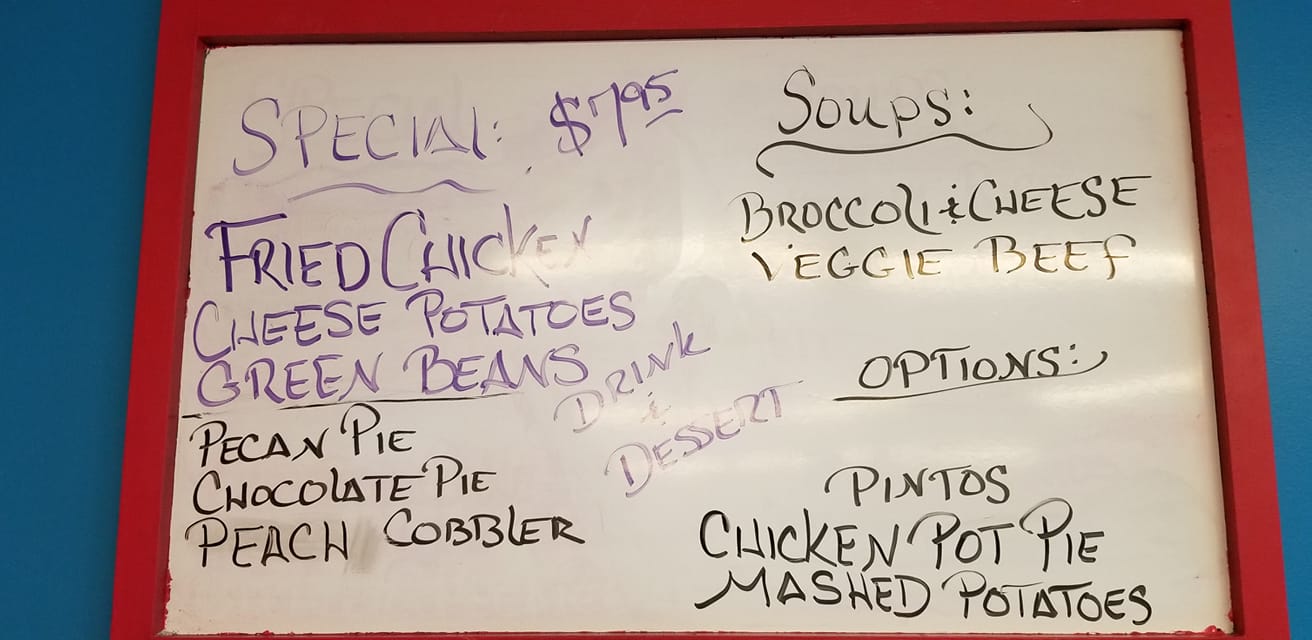 SPECIAL: $7.95
FRIED CHICKEN
CHEESE POTATOES
GREEN BEANS
DRINK
&
DESSERT
PECAN PIE
CHOCOLATE PIE
PEACH COBBLER
SOUPS:
BROCCOLI & CHEESE
VEGGIE BEEF
OPTIONS:
PINTOS
CHICKEN POT PIE
MASHED POTATOES